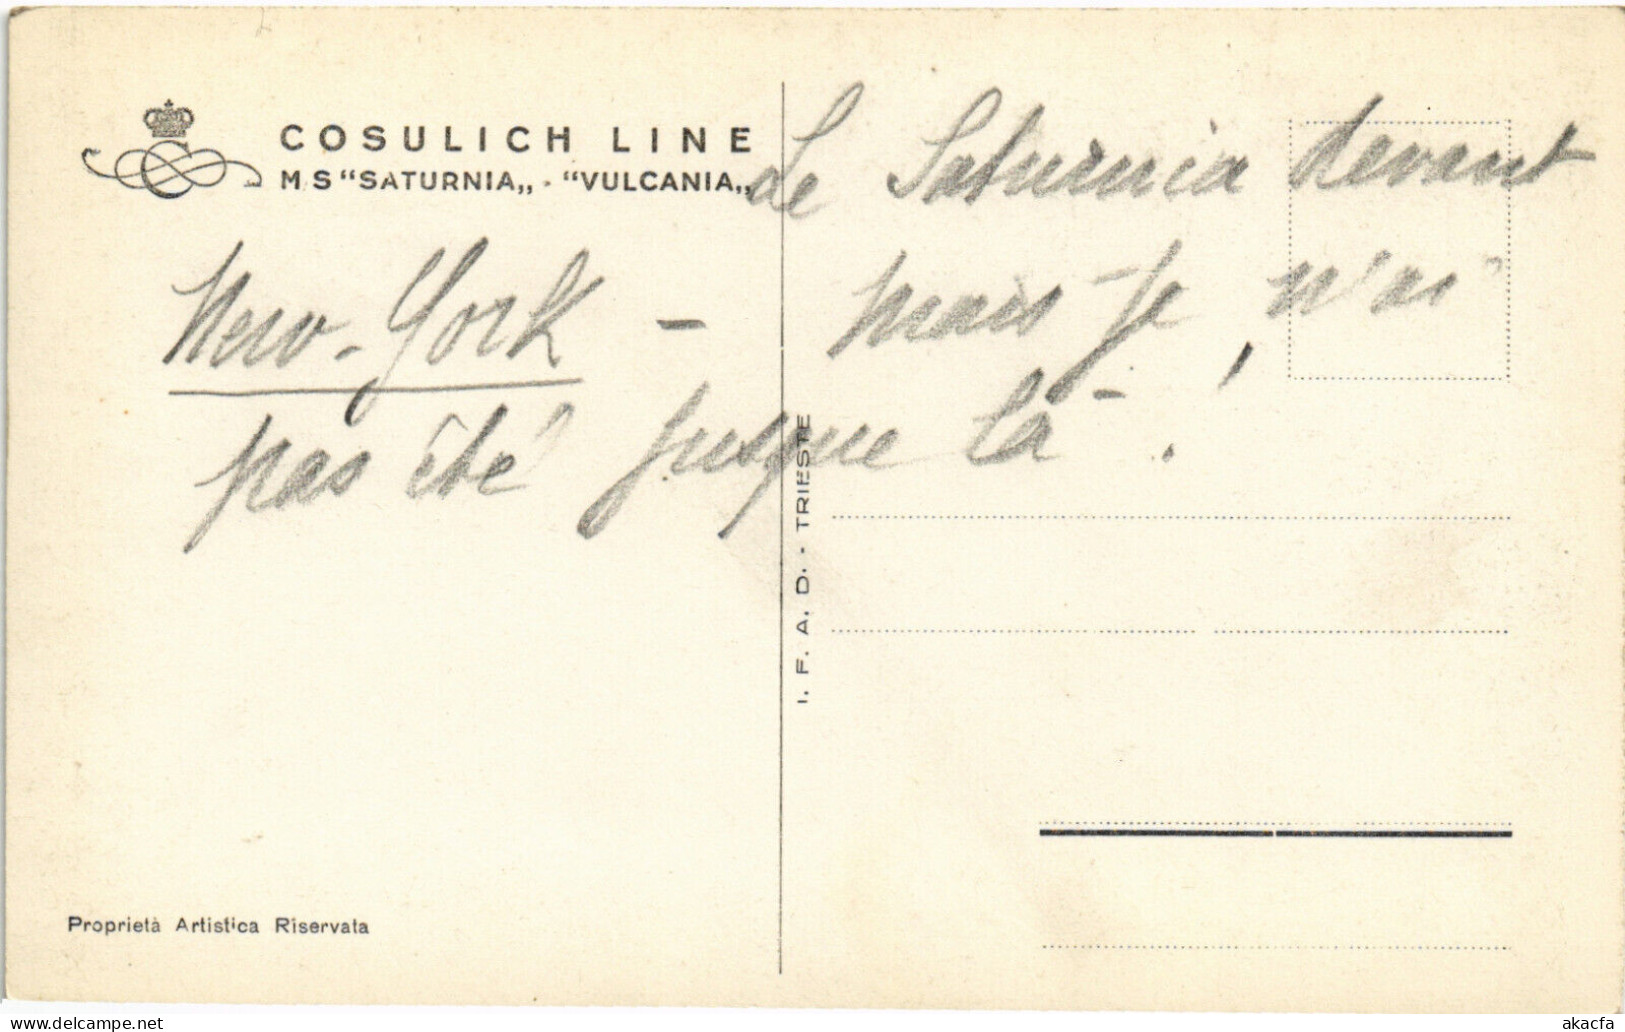 COSULICH LINE
M.S "SATURNIA„ · "VULCANIA„
Le Saturnia devant
New-York - mais je, n'ai
pas été jusque là.
I. F. A. D. - TRIESTE
Proprietà Artistica Riservata
delcampe.net
akacfa